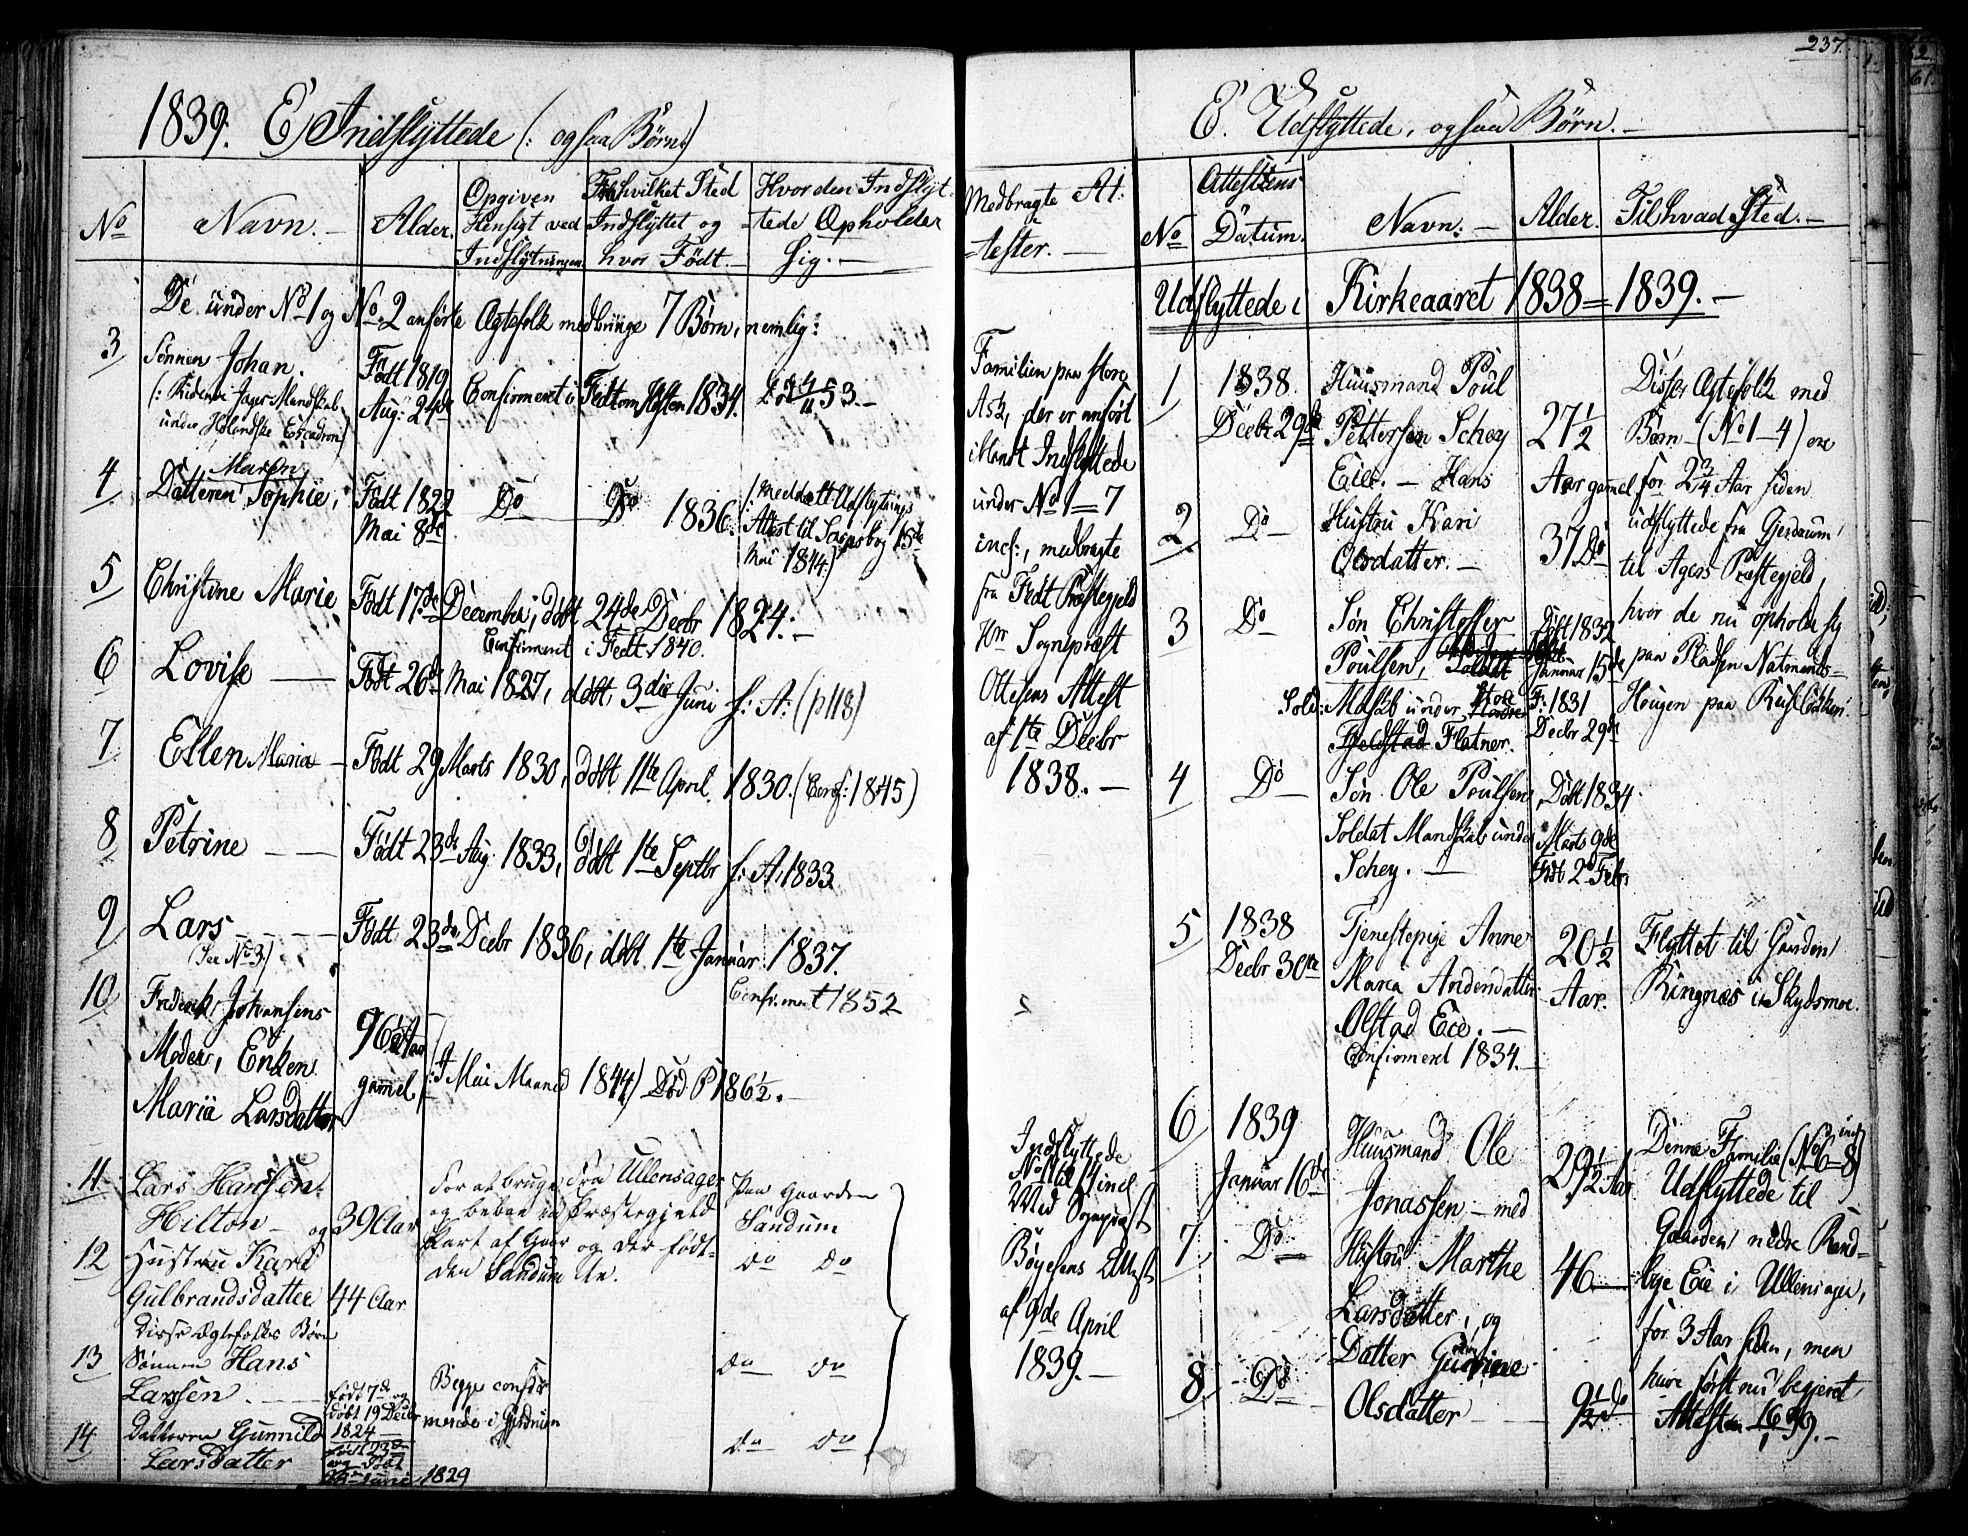 237.
1839. E) Indflyttede (: ogsaa Børn:)
No
Navn. —
Alder.
Opgiven
Hensigt ved
Indflytningen
Fra hvilket Sted
Indflyttet og
hvor Født. —
Hvor den Indflyt-
tede Opholder
sig. —
De under No 1 og No 2 anførte Ægtefolk medbringe 7 Børn, nemlig:
3
Sønnen Johan.
under Holandske Escadron)
Født 1819
Aug: 24de
Confirmeret i Fedt om Høsten 1834.
53. —
4
Maren
Datteren Sophie,
Født 1822
Mai 8de
Do
Do 1836.
(: Meddelt Udflytnings
Attest til
15de
Mai 1844.)
5
Christine Marie
Født 17de December, døbt 24de Decbr 1824. —
Confirmeret i Fedt 1840.
6
Lovise —
Født 26de Mai 1827, døbt 3die Juni s: A: (p 118)
7
Ellen Maria —
Født 29 Marts 1830, døbt 11te April 1830. (Conf: 1845)
8
Petrine — —
Født 23de Aug. 1833, døbt 1te Septbr s: A: 1833
9
Lars
(See No 3.)
Født 23de Decbr 1836, døbt 1te Januar 1837.
Confirmeret 1852
10
Frederik Johansens
Moder, Enken
Maria Larsdatter
96½ Aar
gammel
(: I Mai Maaned 1844) Død P 186½. —
11
Lars Hansen
Hilton — og
39 Aar
For at bruge
og beboe en
Part af Gaar
den Sandum
Fra Ullensager
Præstegjeld
og der født-
e.
Paa Gaarden
Sandum
12
Hustru Kari
Gulbrandsdatter
44 Aar
do do
Disse Ægtefolks Børn
13
Sønnen Hans
Larssen. — —
født 7de og
døbt 19 Decbr
1824 —
Begge confir
merede i Gjerdrum
do do
14
Datteren Gunnild
Larsdatter
født 23de
1829
do do
E. Udflyttede, ogsaa Børn. —
Medbragte At-
tester. —
No
Attestens
Datum.
Navn. —
Alder.
Til hvad Sted. —
Udflyttede i Kirkeaaret 1838 = 1839. —
Familien paa store
Ask, der er anført
iblandt Indflyttede
under No 1 = 7
incl:, medbragte
fra Fedt Præstegjeld
Hr Sognepræst
Ottesens Attest
af 1te Decbr
1838. —
1
1838
Decbr 29de
Huusmand Poul
Pettersen Schey
Eie. — Hans
27½
Aar gamel
Disse Ægtefolk med
Børn (No 1—4) ere
for 2¾ Aar siden
udflyttede fra Gjerdrum
til Agers Præstegjeld,
hvor de nu opholde sig
paa Pladsen Natmands-
Hougen paa Rustløkken.
2
Do
Hustru Kari
Olsdatter. —
37 Do
3
Do
Søn Christoffer
Poulsen, Soldat
Sold: Mdskb under Store
Fjeldstad Flatner.
Døbt 1832
Januar 15de
F: 1831
Decbr 29de
4
Do
Søn Ole Poulsen
Soldat Mandskab under
Schey. —
Døbt 1834
Marts 9de
Født 2 Febr
5
1838
Decbr 30te
Tjenestepige Anne
Maria Andersdatter
Olstad Eie. —
Confirmeret 1834. —
20½
Aar.
Flyttet til Gaarden
Ringnæs i Skydsmoe.
Indflyttede
No 11 til 14 incl
Med Sognepræst
Bøyesens Attest
af 9de April
1839. —
6
1839
Januar 16de
Huusmand Ole
Jonassen — med
29½ Aar
Denne Familie (No 6=8 incl)
Udflyttede til
Gaarden nedre Rand-
bye Eie i Ullensager,
for 3 Aar siden, men
have først nu begjeret
Attesten 16/1 39. —
7
Do
Hustru Marthe
Larsdatter, og
46 —
8
Do
Datter Gurine
Olsdatter
9½ do